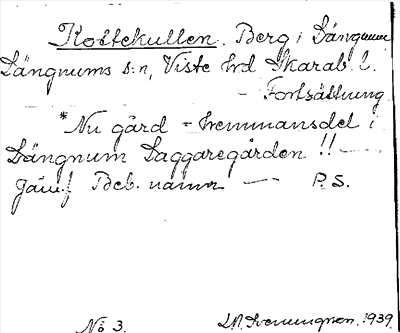 Kottekullen. Berg i Längnum
Längnums s:n, Viste hrd Skarab. l.
- Fortsättning
*Nu gård - hemmansdel i
Längnum Laggaregården !! —
Jämf Beb. namn — P. S.
No 3. 1939.